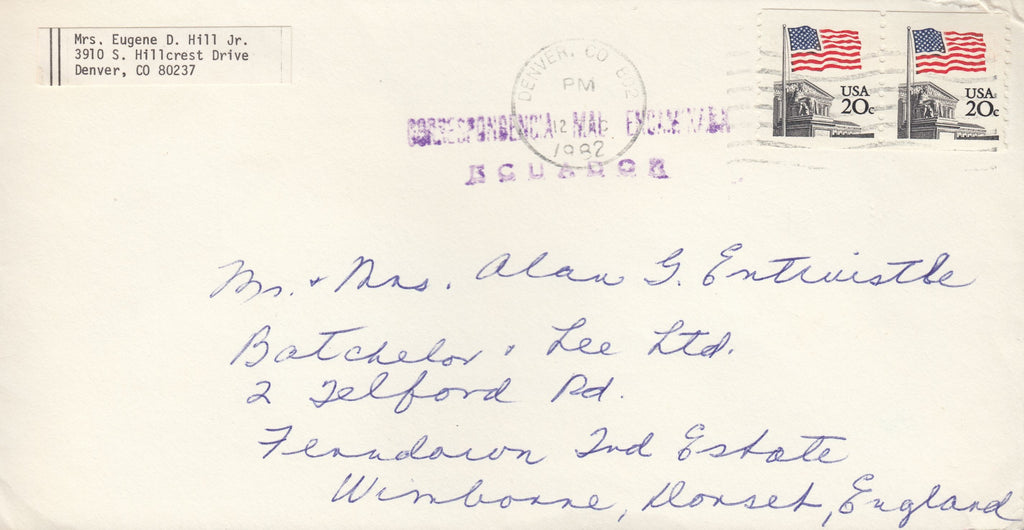 Mrs. Eugene D. Hill Jr.
3910 S. Hillcrest Drive
Denver, CO 80237
DENVER, CO 802
PM
12
1982
CORRESPONDENCIA MAL ENCAMINADA
ECUADOR
USA
20c
USA
20c
Mr. & Mrs. Alan G. Entwistle
Batchelor & Lee Ltd.
2 Telford Rd.
Ferndown Ind Estate
Wimborne, Dorset, England